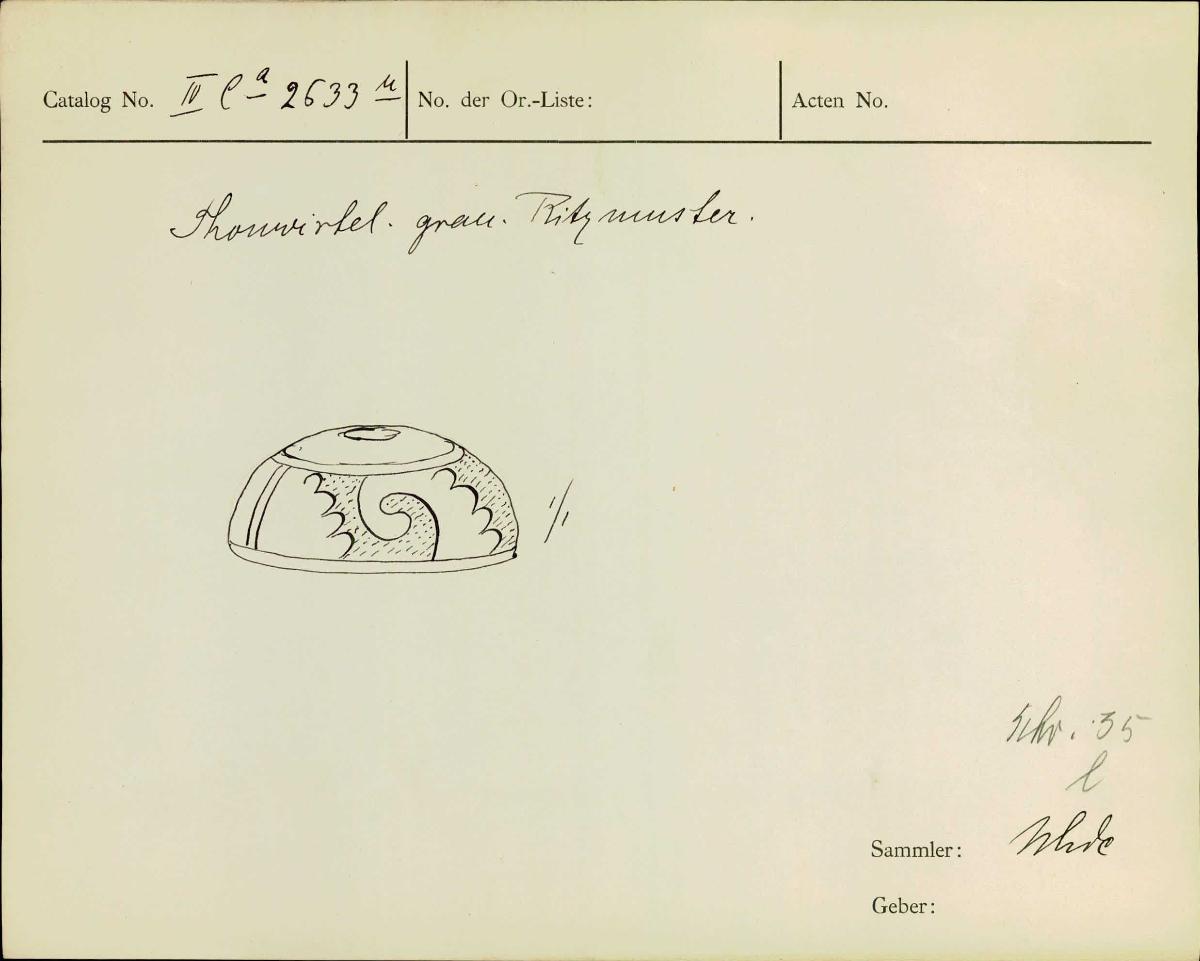 Catalog No. IV Ca 2633 u
No. der Or.-Liste:
Acten No.
Thonwirtel. grau. Ritzmuster.
1/1
Schr. 35
l
Sammler: Uhde
Geber: